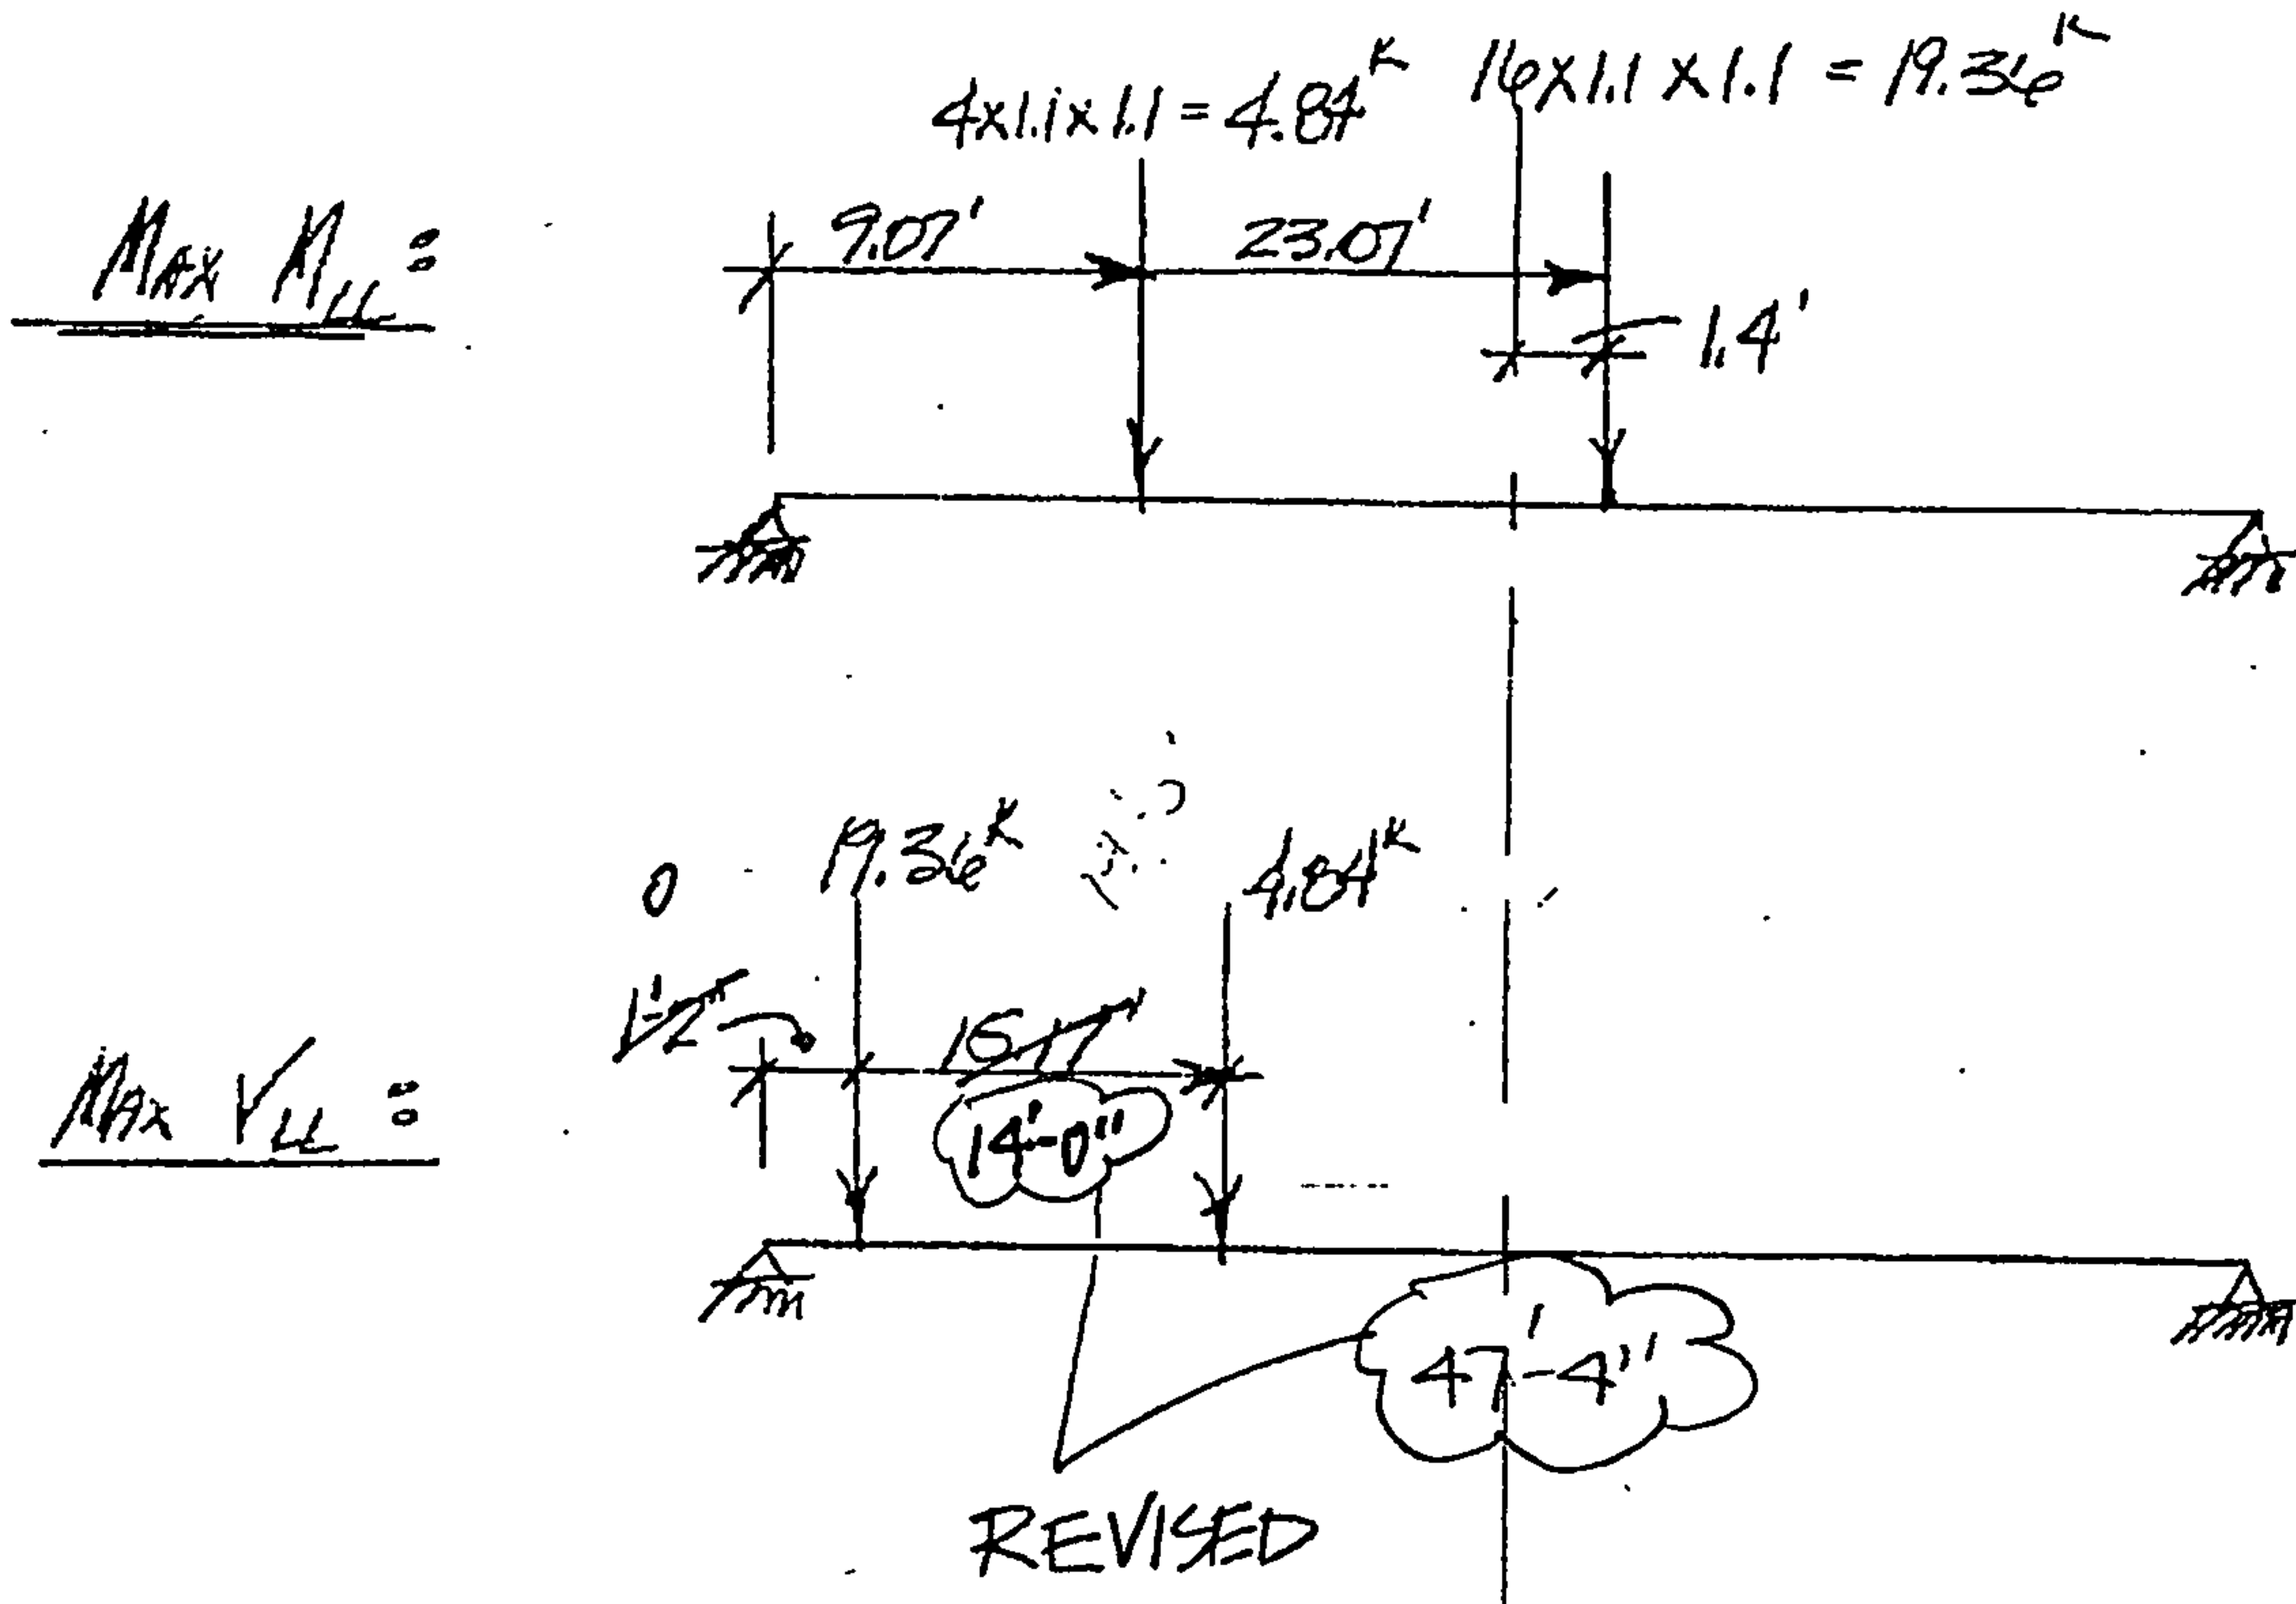 4x1.1x1.1 = 4.84ᴷ
16x1.1x1.1 = 19.36ᴷ
MAX M_LL =
9.07'
23.07'
1.4'
0
19.36ᴷ
4.84ᴷ
1'-2"
MAX V_LL =
14'-0"
47'-4"
REVISED